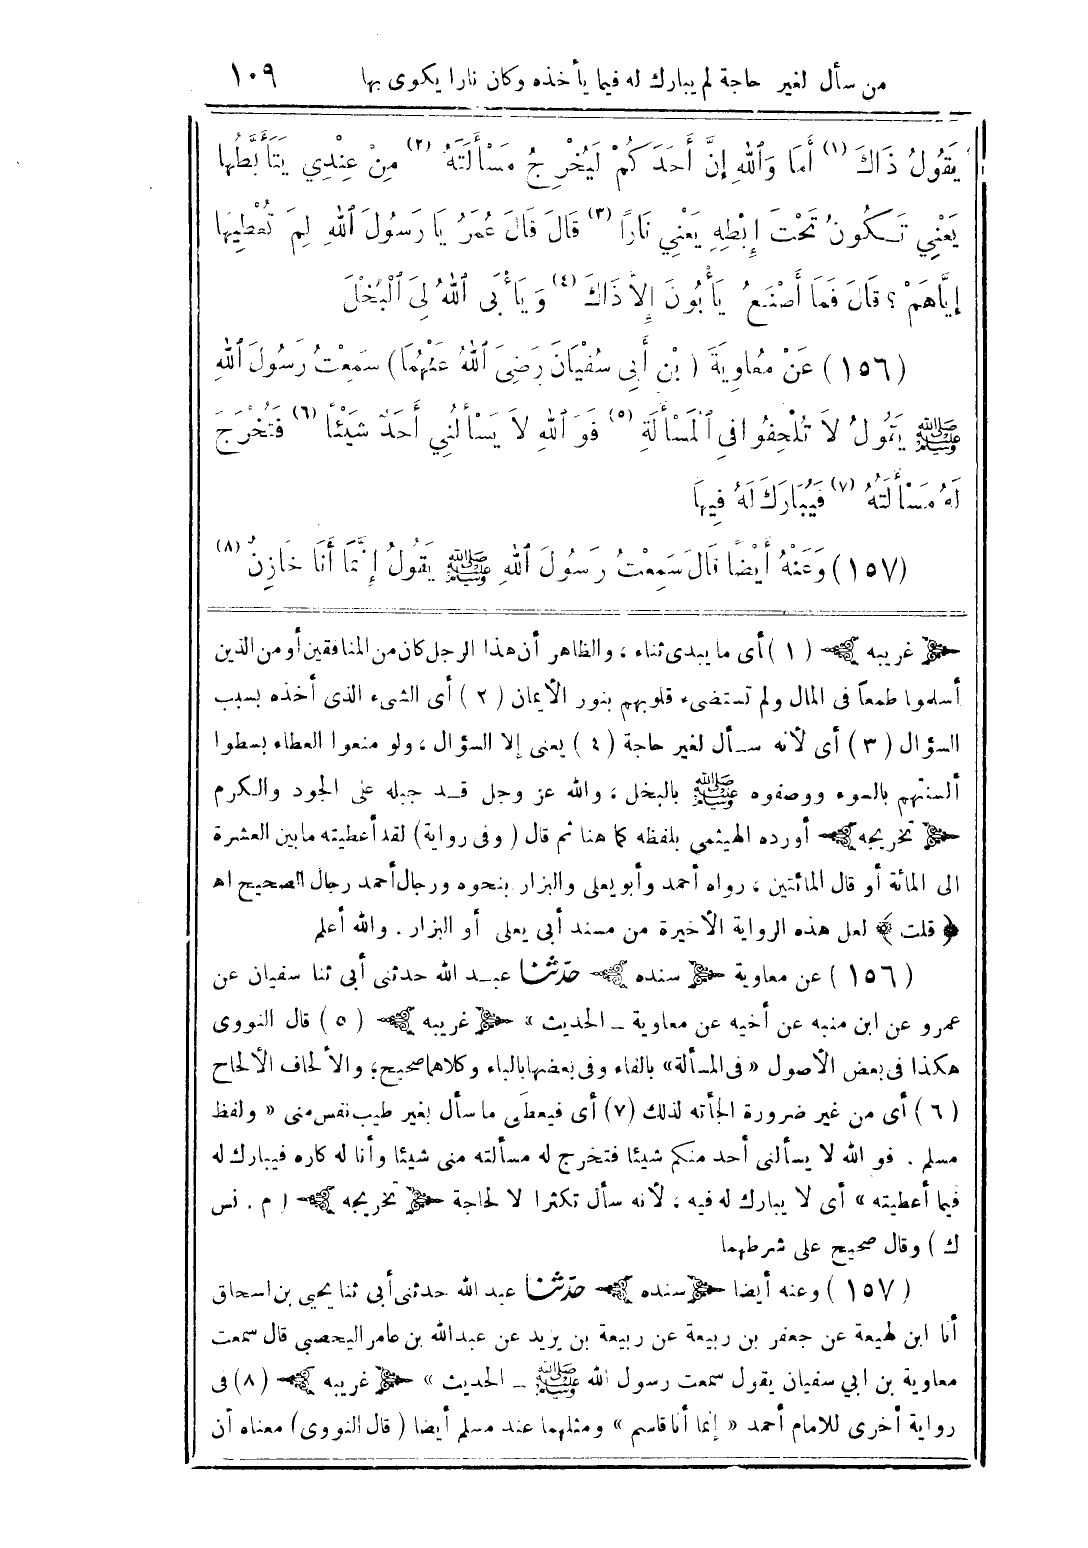 من سأل لغير حاجة لم يبارك له فيما يأخذه وكان نارا يكوى بها ١٠٩
يَقُولُ ذَاكَ (١) أَمَا وَاللهِ إِنَّ أَحَدَكُمْ لَيُخْرِجُ مَسْأَلَتَهُ (٢) مِنْ عِنْدِي يَتَأَبَّطُهَا
يَعْنِي تَكُونُ تَحْتَ إِبْطِهِ يَعْنِي نَارًا (٣) قَالَ قَالَ عُمَرُ يَا رَسُولَ اللهِ لِمَ تُعْطِيهَا
إِيَّاهُمْ ؟ قَالَ فَمَا أَصْنَعُ يَأْبُونَ إِلاَّ ذَاكَ (٤) وَيَأْبَى اللهُ لِىَ الْبُخْلَ
(١٥٦) عَنْ مُعَاوِيَةَ ( بْنِ أَبِى سُفْيَانَ رَضِىَ اللهُ عَنْهُمَا ) سَمِعْتُ رَسُولَ اللهِ
ﷺ يَقُولُ لاَ تُلْحِفُوا فِى الْمَسْأَلَةِ (٥) فَوَ اللهِ لاَ يَسْأَلُنِي أَحَدٌ شَيْئًا (٦) فَتُخْرَجَ
لَهُ مَسْأَلَتُهُ (٧) فَيُبَارَكَ لَهُ فِيهَا
(١٥٧) وَعَنْهُ أَيْضًا قَالَ سَمِعْتُ رَسُولَ اللهِ ﷺ يَقُولُ إِنَّمَا أَنَا خَازِنٌ (٨)
﴿ غريبه ﴾ (١) أى ما يبدى ثناء ، والظاهر أن هذا الرجل كان من المنافقين أو من الذين
أسلموا طمعاً فى المال ولم تستضىء قلوبهم بنور الأيمان (٢) أى الشىء الذى أخذه بسبب
السؤال (٣) أى لأنه سأل لغير حاجة (٤) يعنى إلا السؤال ، ولو منعوا العطاء بسطوا
ألسنتهم بالسوء ووصفوه ﷺ بالبخل ، والله عز وجل قد جبله على الجود والكرم
﴿ تخريجه ﴾ أورده الهيثمي بلفظه كما هنا ثم قال ( وفى رواية ) لقد أعطيته ما بين العشرة
الى المائة أو قال المائتين ، رواه أحمد وأبو يعلى والبزار بنحوه ورجال أحمد رجال الصحيح اه
﴿ قلت ﴾ لعل هذه الرواية الأخيرة من مسند أبى يعلى أو البزار . والله أعلم
(١٥٦) عن معاوية ﴿ سنده ﴾ حدّثنا عبد الله حدثنى أبى ثنا سفيان عن
عمرو عن ابن منبه عن أخيه عن معاوية ــ الحديث » ﴿ غريبه ﴾ (٥) قال النووى
هكذا فى بعض الأصول « فى المسألة » بالفاء وفى بعضها بالباء وكلاهما صحيح ؛ والألحاف الألحاح
(٦) أى من غير ضرورة الجأته لذلك (٧) أى فيعطَى ما سأل بغير طيب نفس منى « ولفظ
مسلم . فو الله لا يسألنى أحد منكم شيئا فتخرج له مسألته منى شيئا وأنا له كاره فيبارك له
فيما أعطيته » أى لا يبارك له فيه ، لأنه سأل تكثرا لا لحاجة ﴿ تخريجه ﴾ ( م . نس
ك ) وقال صحيح على شرطهما
(١٥٧) وعنه أيضا ﴿ سنده ﴾ حدّثنا عبد الله حدثنى أبى ثنا يحيى بن اسحاق
أنا ابن لهيعة عن جعفر بن ربيعة عن ربيعة بن يزيد عن عبد الله بن عامر اليحصبي قال سمعت
معاوية بن ابي سفيان يقول سمعت رسول الله ﷺ ــ الحديث » ﴿ غريبه ﴾ (٨) فى
رواية أخرى للامام أحمد « إنما أنا قاسم » ومثلهما عند مسلم أيضا ( قال النووى ) معناه أن